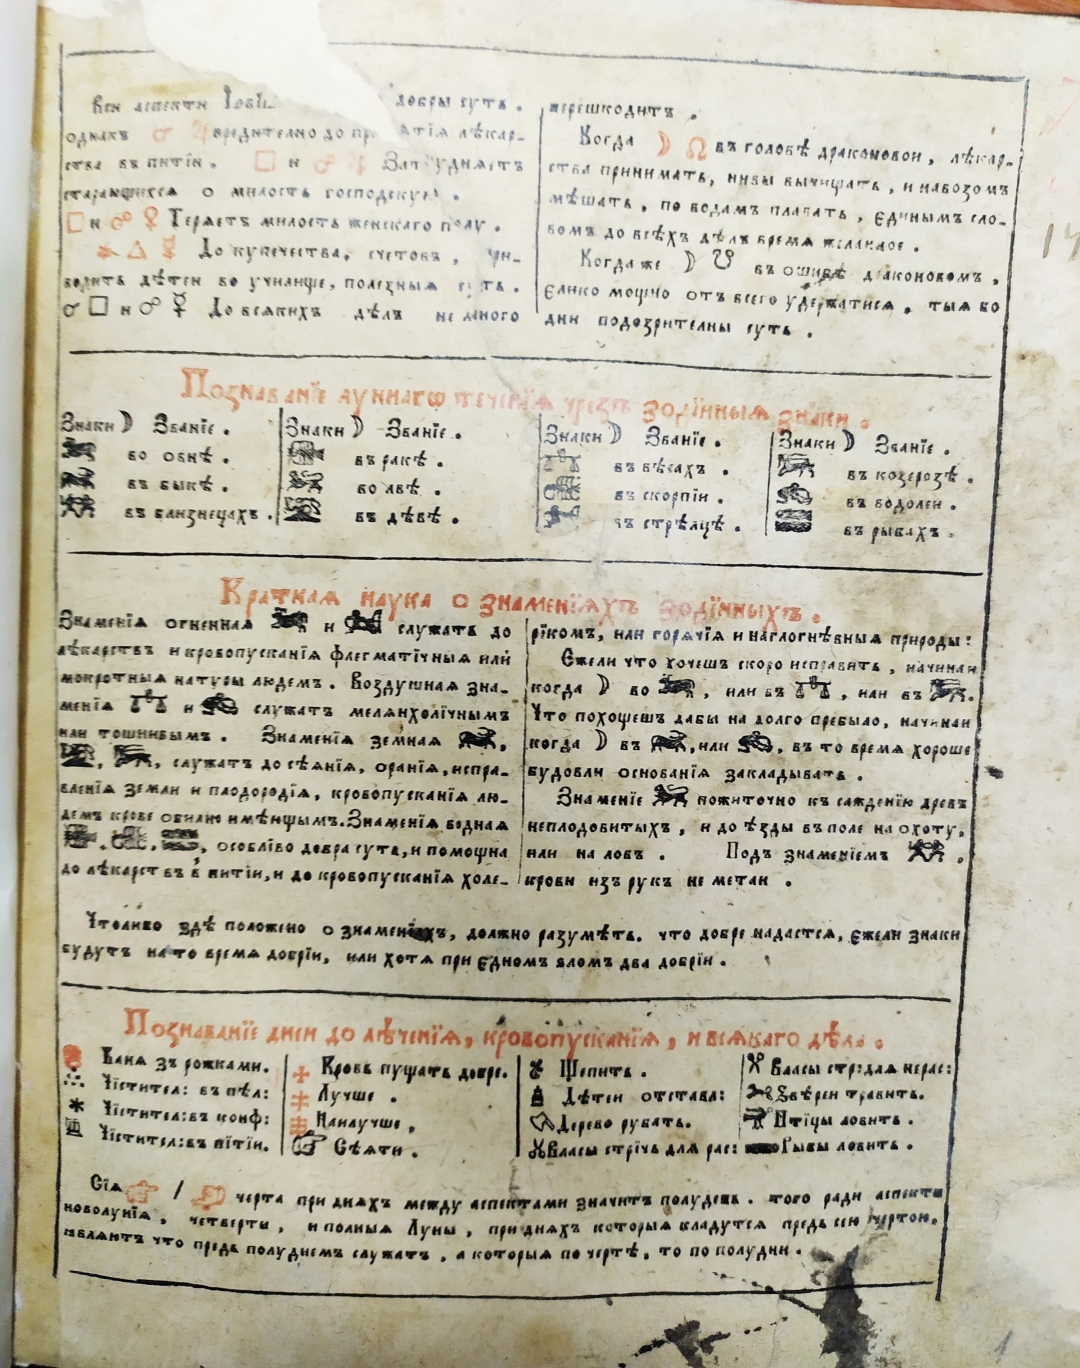 Вси аспекти Іові добры суть .
однакъ ♂ ♃ вредително до при ятїя лѣкар-
ства въ питїи . □ и ☍ ♃ Затрудняетъ
старающихся о милость господскую .
□ и ☍ ♀ Теряетъ милость женскаго полу .
✶ △ ☿ До купечества, счетовъ , при-
водить дѣтей во училище, полезныя суть .
♂ □ и ☍ ☿ До всякихъ дѣлъ не много
перешкодитъ .
Когда ☽ ☊ въ головѣ драконовой , лѣкар-
ства принимать, нивы вычищать , и навозомъ
мѣшать , по водамъ плавать , єдинымъ сло-
вомъ до всѣхъ дѣлъ время желаемое .
Когда же ☽ ☋ въ ошибѣ драконовомъ ,
єлико мощно отъ всего удержатися , тыя бо
дни подозрителны суть .
Познаванїе луннагѡ теченїя чрезъ зодїйныя знаки .
Знаки ☽ Званїе .
во овнѣ .
въ быкѣ .
въ близнецахъ .
Знаки ☽ Званїе .
въ ракѣ .
во лвѣ .
въ дѣвѣ .
Знаки ☽ Званїе .
въ вѣсахъ .
въ скорпїи .
въ стрѣлцѣ .
Знаки ☽ Званїе .
въ козерозѣ .
въ водолеи .
въ рыбахъ .
Краткая наука о знаменїяхъ зодїйныхъ .
Знаменїя огненная и служатъ до
лѣкарствъ и кровопусканїя флегматїчныя или
мокротныя натуры людемъ . Воздушная зна-
менїя и служатъ мелянхолїчнымъ
или тошнивымъ . Знаменїя земная ,
, , служатъ до сѣянїя, оранїя, испра-
вленїя земли и плодородїя, кровопусканїя лю-
демъ крове обилно имѣющымъ. Знаменїя водная
, , , особлїво добра суть, и помощна
до лѣкарствъ в питїи, и до кровопусканїя холе-
рїкомъ, или горячїя и наглогнѣвныя природы :
Єжели что хочешъ скоро исправить , начинай
когда ☽ во , или въ , или въ .
Что похощешъ дабы на долго пребыло, начинай
когда ☽ въ , или , въ то время хороше
будовли основанїя закладывать .
Знаменїе пожиточно къ сажденїю древъ
неплодовитыхъ , и до ѣзды въ поле на охоту,
или на ловъ . Подъ знаменїемъ ,
крови изъ рукъ не метай .
Чтоливо здѣ положено о знаменїяхъ, должно разумѣть. что добре надается, єжели знаки
будутъ на то время добрїи, или хотя при єдномъ зломъ два добрїи .
Познаванїе дней до лѣченїя, кровопусканїя, и всякаго дѣла .
Баня зъ рожками.
Чїстител: въ пѣл:
Чїстител: въ конф:
Чїстител: въ пїтїи.
Кровь пущать добре.
Лучше .
Найлучше ,
Сѣяти .
Щепить .
Дѣтей отставл:
Дерево рубать.
Власы стрїчь для рас:
Власы стр: для нерас:
Ѕвѣрей травить.
Птїцы ловить .
Рыбы ловить .
Сїя / черта при дняхъ между аспектами значитъ полудень . того ради аспекты
новолунїя , четверты , и полныя Луны , при дняхъ которыя кладутся предъ сею чертою,
являютъ что предъ полуднемъ служатъ , а которыя по чертѣ , то по полудни .